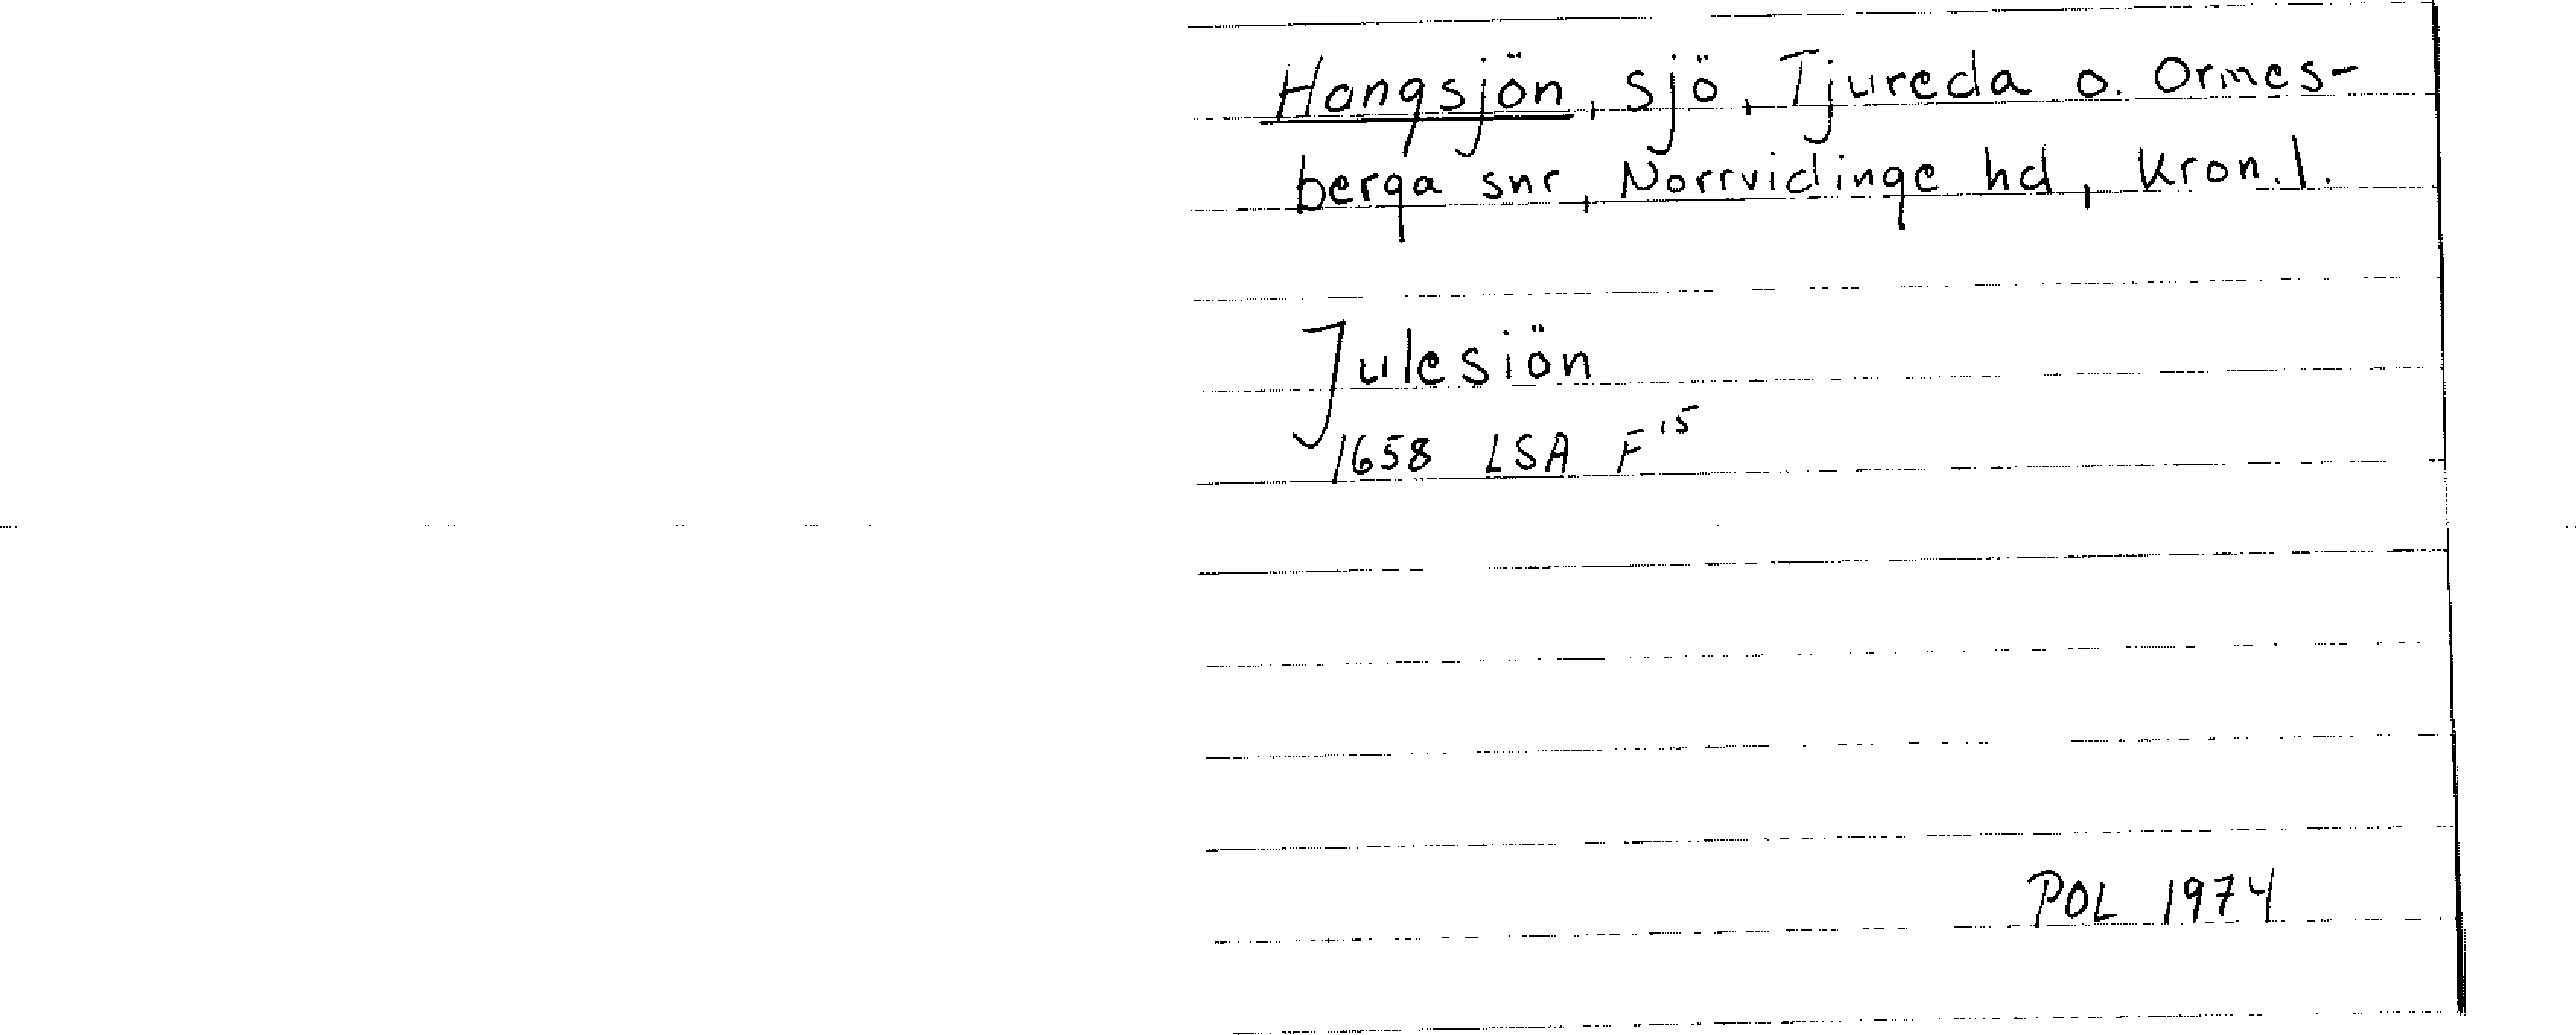 Hongsjön, sjö, Tjureda o. Ormes-
berga snr, Norrvidinge hd, Kron.l.
Julesiön
1658 LSA F15
POL 1974